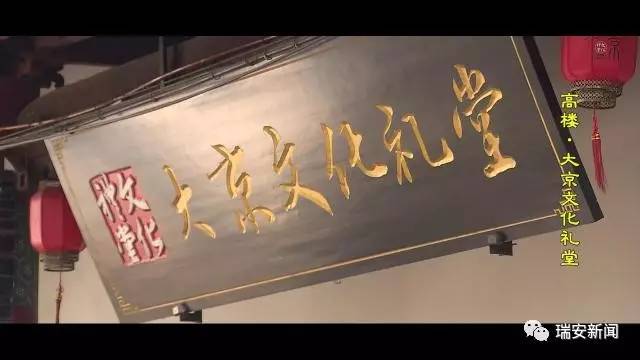 大京文化礼堂
文化
礼堂
高楼·大京文化礼堂
瑞安新闻